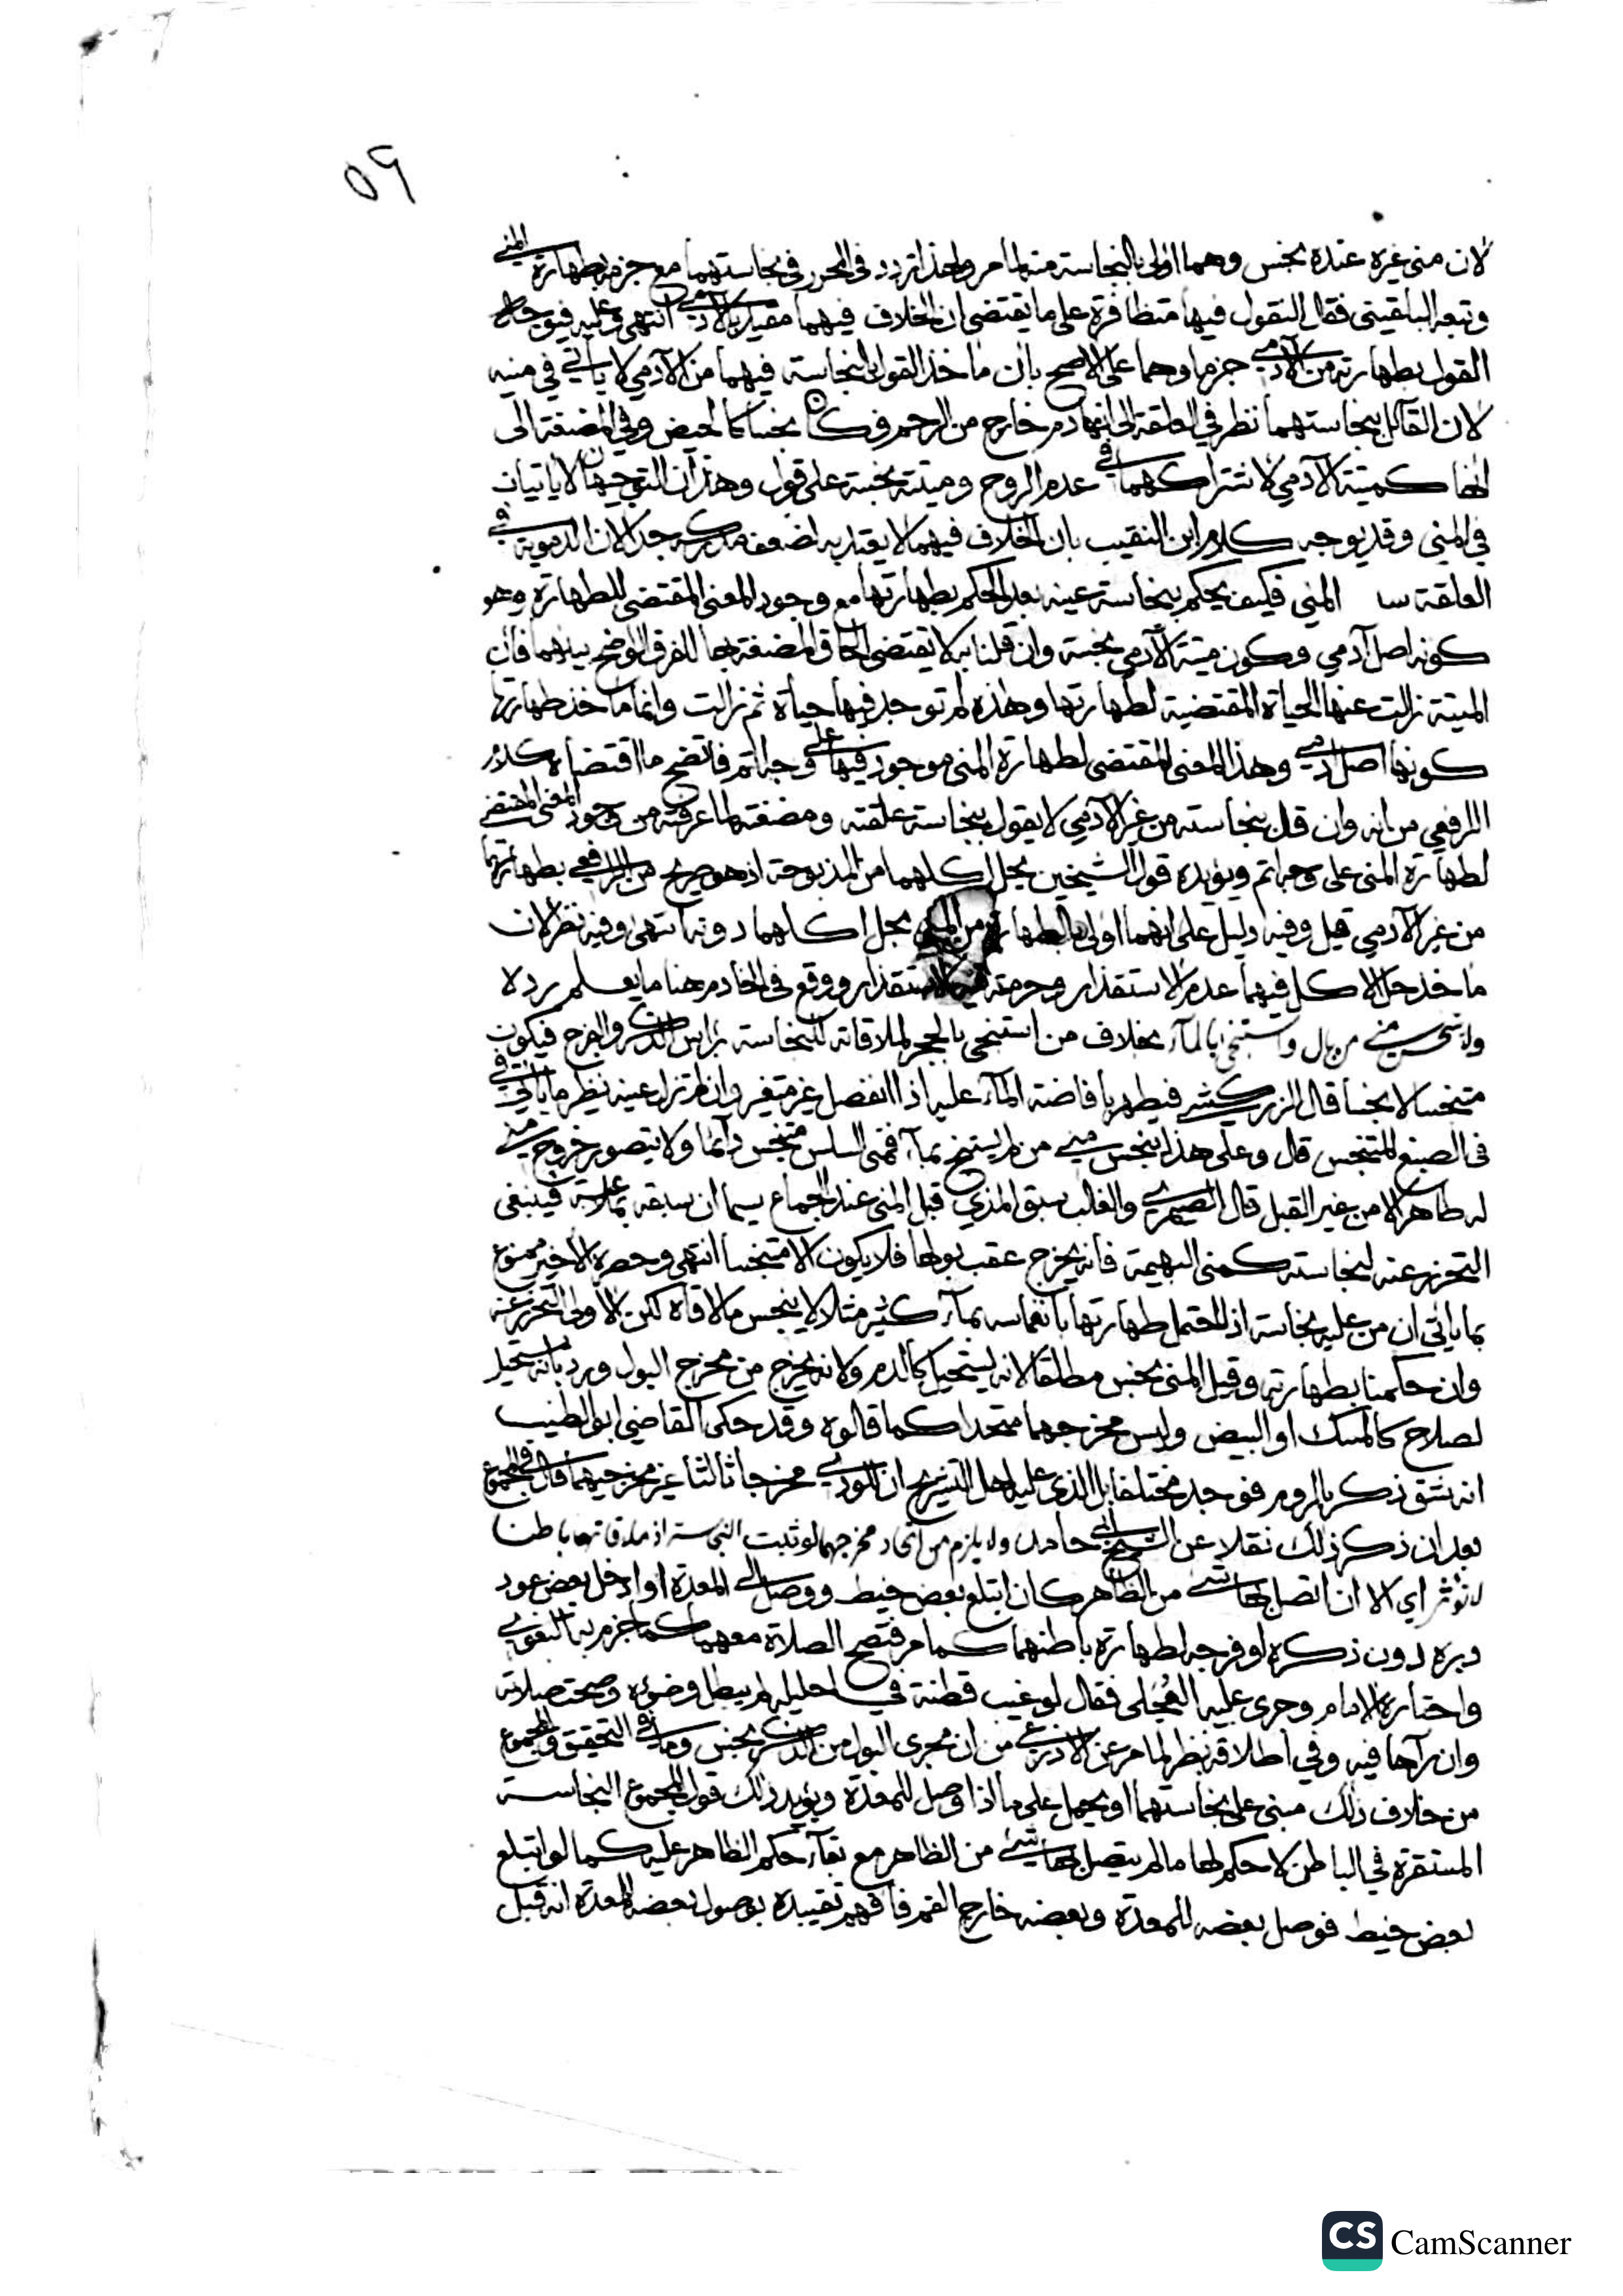 ٥٩
لان منى غيره عنده نجس وهما اولى بالنجاسة منه لما مر ولهذا تردد فى المحرر فى نجاستهما مع جزمه بطهارة المنى
وتبعه البلقينى فقال النقول فيها متظافرة على ما يقتضى ان الخلاف فيهما مقيد بالادمى انتهى وعليه فيوجه
القول بطهارته من الآدمى جزما وهما على الاصح بان ماخذ القول بنجاسة فيهما من الآدمي لا ياتي في منيه
لان القائل بنجاستهما نظر في العلقة الى انها دم خارج من الرحم فكان نجسا كالحيض وفي المضغة الى
انها كميتة الآدمي لاشتراكهما في عدم الروح وميتته نجسة على قول وهذان التوجيهان لا ياتيان
في المني وقد يوجه كلام ابن النقيب بان الخلاف فيهما لا يعتد به لضعف مدركه جدا لان الدموية في
العلقة المني فكيف يحكم بنجاسة عينه بعد الحكم بطهارتها مع وجود المعنى المقتضى للطهارة وهو
كونه اصل آدمي وكون ميتة الآدمي نجسة وان قلنا به لا يقتضى الحاق المضغة بها للفرق الواضح بينهما فان
الميتة زالت عنها الحياة المقتضية لطهارتها وهذه لم توجد فيها حياة ثم زالت وانما ماخذ طهارتها
كونها اصل ادمي وهذا المعنى المقتضى لطهارة المنى موجود فيها على وجه اتم فاتضح ما اقتضاه كلام
الرافعي من انه وان قلنا بنجاسته من غير الآدمي لا يقول بنجاسة علقته ومضغته لما عرفته من وجود المعنى المقتضى
لطهارة المنى على وجه اتم ويؤيده قول الشيخين بحل اكلهما من المذبوحة اذ هو صريح من الرافعي بطهارتهما
من غير الآدمي قيل وفيه دليل على انهما اولى بالطهارة من المنى بحل اكلهما دونه انتهى وفيه نظر لان
ماخذ حل الاكل فيهما عدم الاستقذار وحرمته فيه الاستقذار ووقع فى الخادم هنا ما يعلم رده
ولا ينجس منى من بال واستنجى بالماء بخلاف من استنجى بالحجر لملاقاته للنجاسة براس الذكر والفرج فيكون
متنجسا لا نجسا قال الزركشى فيطهر بافاضة الماء عليه اذا انفصل غير متغير وان لم تزل عينه نظير ما ياتي في
فى الصبغ المتنجس قال وعلى هذا ينجس منى من لم يستنج بماء فمنى السلس متنجس دائما ولا يتصور خروج منى
له طاهر الا من غير القبل قال الصيمرى والغالب سبق المذي قبل المنى عند الجماع سيما ان سبقه ملاعبة فينبغى
التحرز عنه لنجاسته كمنى البهيمة فانه يخرج عقب بولها فلا يكون الا متنجسا انتهى وحصره الاخير ممنوع
بما ياتي ان من عليه نجاسة اذا احتمل طهارتها بانغماسه بماء كثير مثلا لا ينجس ما لاقاه لكن الاولى التحرز عنه
وان حكمنا بطهارته وقيل المنى نجس مطلقا لانه يستحيل كالدم ولانه يخرج من مخرج البول ورد بانه مستحيل
لصلاح كالمسك او البيض وليس مخرجهما متحدا كما قالوه وقد حكى القاضي ابو الطيب
انه شق ذكر بالروم فوجد مختلفا بل الذى عليه اهل التشريح ان للودى مخرجا ثالثا غير مخرجيهما قال فى المجموع
بعد ان ذكر ذلك نقلا عن الشيخ ابى حامد ولا يلزم من اتحاد مخرجهما لو ثبت النجاسة اذ ملاقاتها باطنا
لا تؤثر اي الا ان اتصل بها شى من الظاهر كان ابتلع بعض خيط ووصل الى المعدة او ادخل بعض عود
دبره دون ذكره او فرجه لطهارة باطنهما كما مر فتصح الصلاة معهما كما جزم به البغوى
واختاره الامام وجرى عليه العجلى فقال لو غيب قطنة في احليله لم يبطل وضوءه وصحت صلاته
وان رآها فيه وفي اطلاقه نظر لما مر عن الاذرعى من ان مجرى البول من الذكر نجس وما في التحقيق والمجموع
من خلاف ذلك مبنى على نجاستهما او يحمل على ما اذا وصل للمعدة ويؤيد ذلك قول المجموع النجاسة
المستقرة في الباطن لا حكم لها ما لم يتصل بها شى من الظاهر مع بقاء حكم الظاهر عليه كما لو ابتلع
بعض خيط فوصل بعضه للمعدة وبعضه خارج الفم فافهم تقييده بوصول بعضه المعدة انه قبل
CS CamScanner